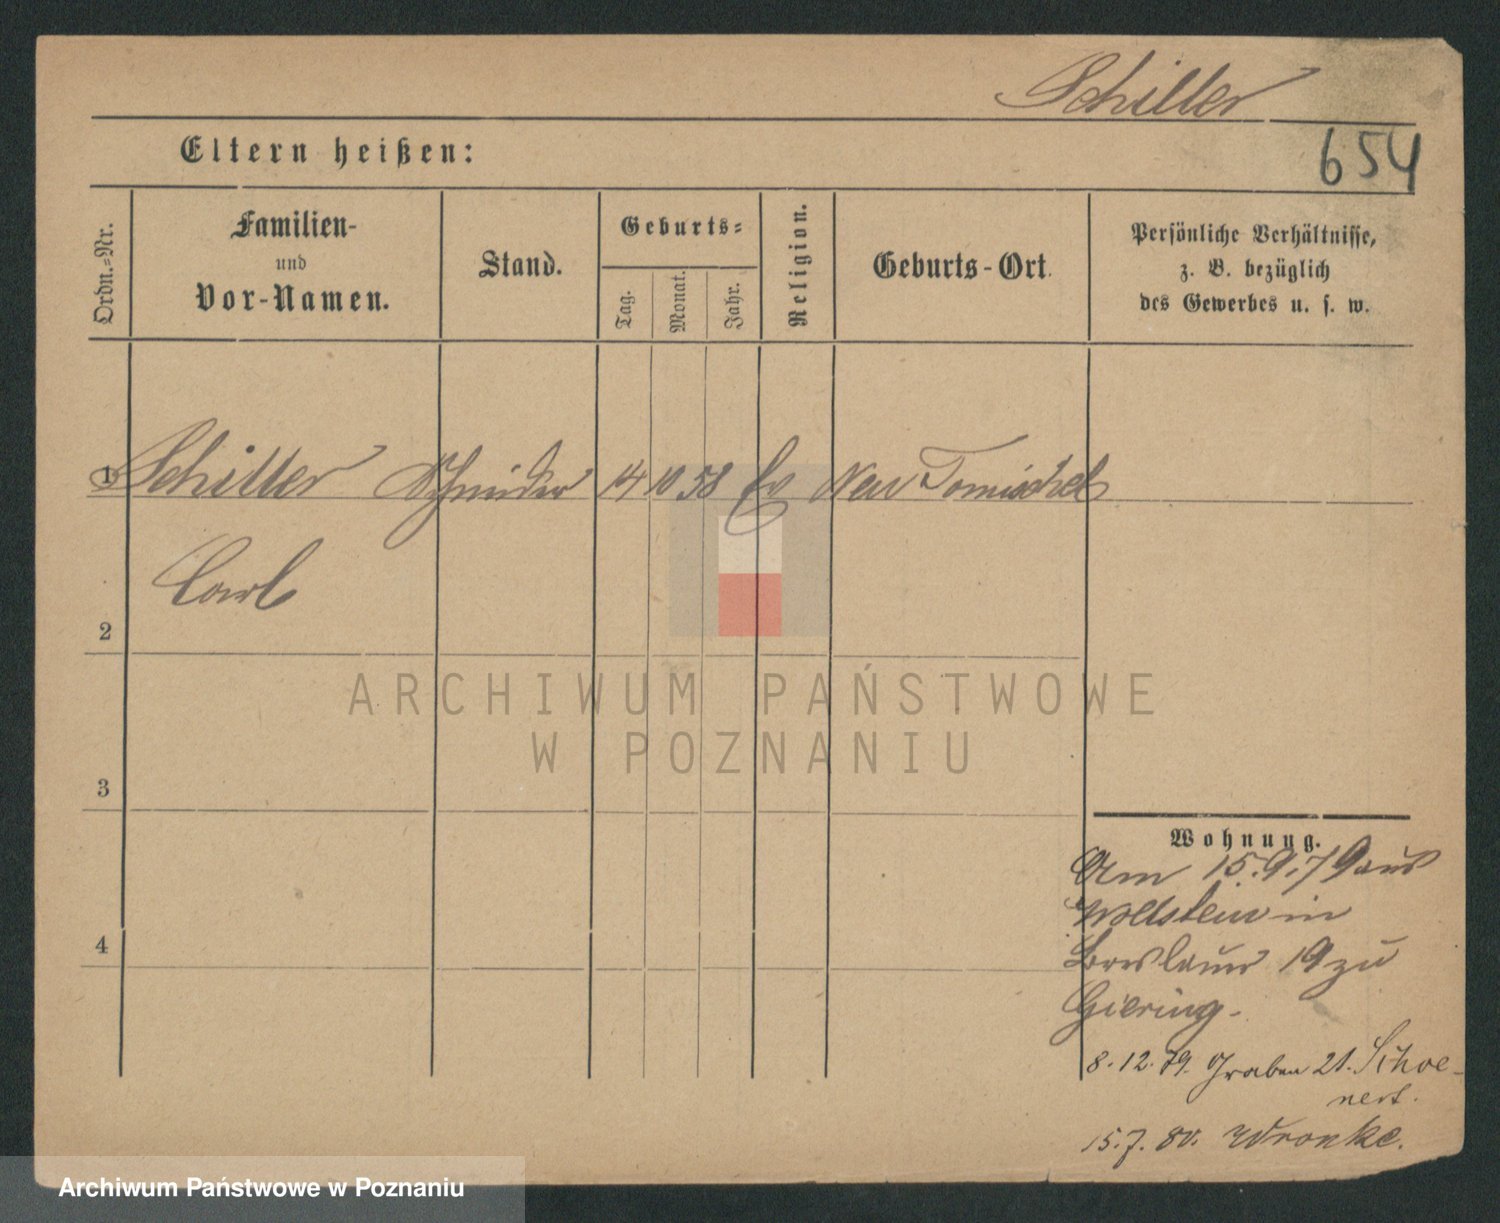 Schiller
654
Eltern heißen:
Ordn.-Nr.
Familien-
und
Vor-Namen.
Stand.
Geburts-
Tag.
Monat.
Jahr.
Religion.
Geburts-Ort
Persönliche Verhältnisse,
z. B. bezüglich
des Gewerbes u. s. w.
1 Schiller Schneider 14 10 58 Ev Neu Tomischel
Carl
2
3
4
Wohnung.
Am 15.9.79 aus
Wollstein in
19 zu
Giering-
8.12.79. Graben 21. Schoe-
nert.
15.7.80. Wronke.
ARCHIWUM PAŃSTWOWE
W POZNANIU
Archiwum Państwowe w Poznaniu